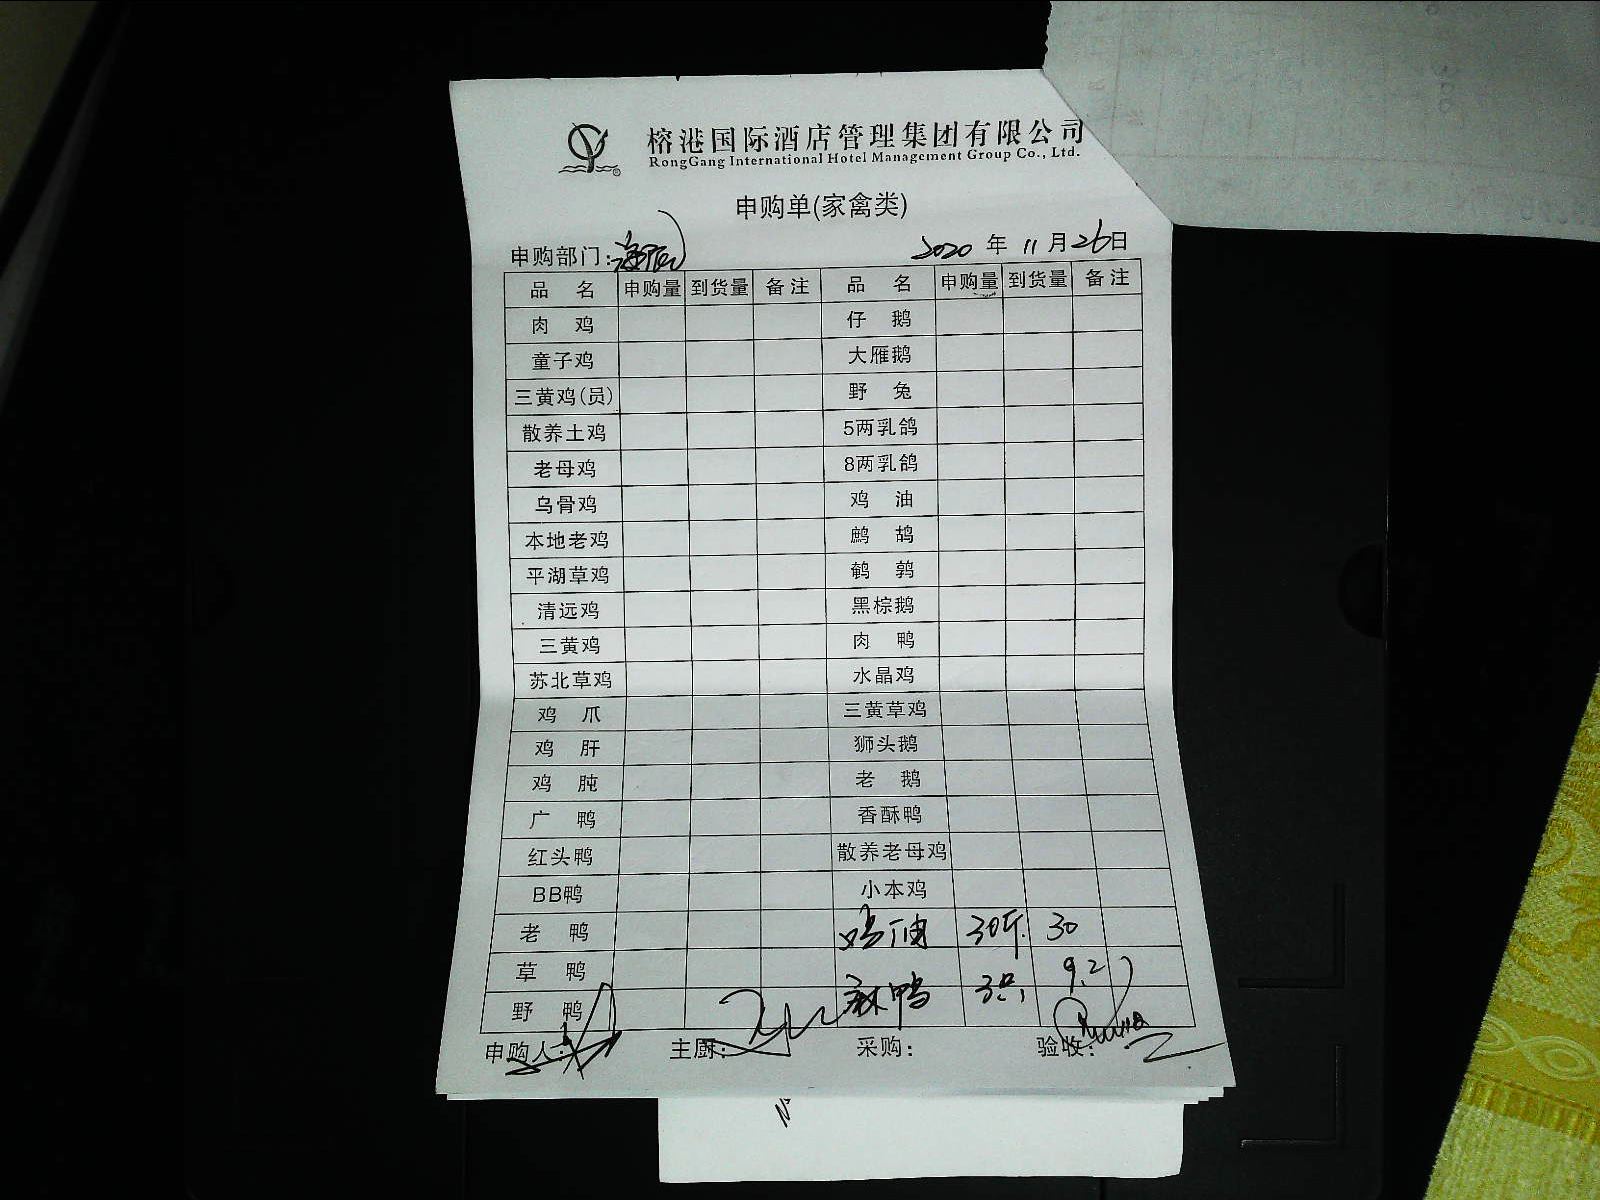 榕港国际酒店管理集团有限公司
RongGang International Hotel Management Group Co., Ltd.
申购单(家禽类)
申购部门: 2020 年 11 月 26 日
品 名 申购量 到货量 备注 品 名 申购量 到货量 备注
肉 鸡 仔 鹅
童子鸡 大雁鹅
三黄鸡(员) 野 兔
散养土鸡 5两乳鸽
老母鸡 8两乳鸽
乌骨鸡 鸡 油
本地老鸡 鹧 鸪
平湖草鸡 鹌 鹑
清远鸡 黑棕鹅
三黄鸡 肉 鸭
苏北草鸡 水晶鸡
鸡 爪 三黄草鸡
鸡 肝 狮头鹅
鸡 肫 老 鹅
广 鸭 香酥鸭
红头鸭 散养老母鸡
BB鸭 小本鸡
老 鸭 鸡油 30斤 30
草 鸭 9.2
野 鸭 麻鸭 3只
申购人: 主厨: 采购: 验收: